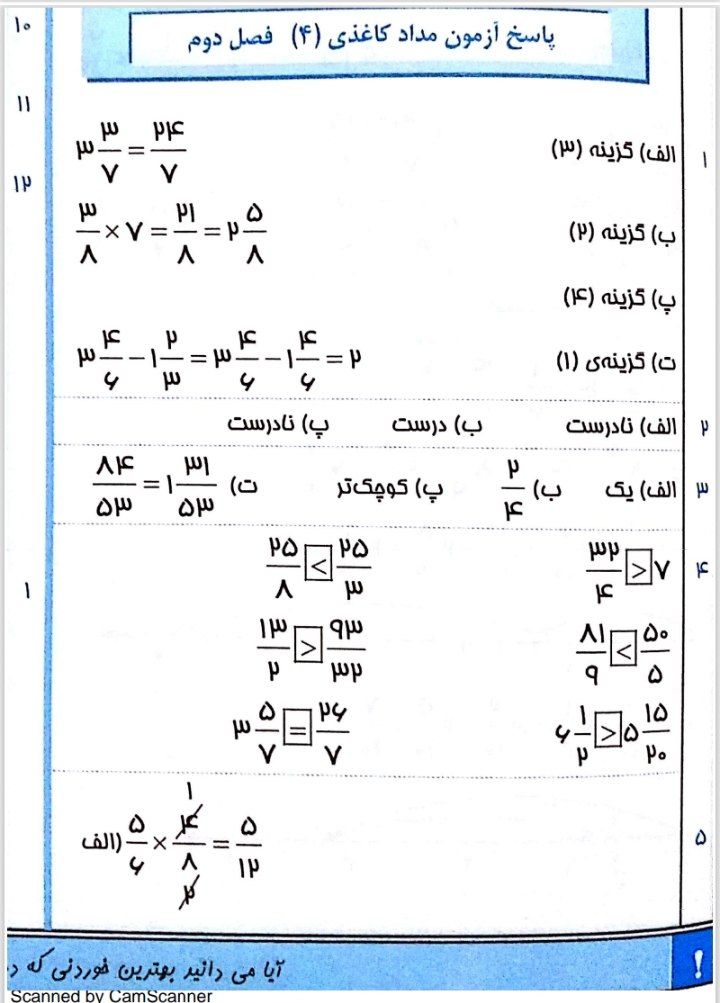 پاسخ آزمون مداد کاغذی (۴) فصل دوم
۱۰
۱۱
۱۲
۱
۱ الف) گزینه (۳) ۳ ۳/۷ = ۲۴/۷
ب) گزینه (۲) ۳/۸ × ۷ = ۲۱/۸ = ۲ ۵/۸
پ) گزینه (۴)
ت) گزینه‌ی (۱) ۳ ۴/۶ − ۱ ۲/۳ = ۳ ۴/۶ − ۱ ۴/۶ = ۲
۲ الف) نادرست ب) درست پ) نادرست
۳ الف) یک ب) ۲/۴ پ) کوچک‌تر ت) ۸۴/۵۳ = ۱ ۳۱/۵۳
۴ ۳۲/۴ > ۷ ۲۵/۸ < ۲۵/۳
۸۱/۹ < ۵۰/۵ ۱۳/۲ > ۹۳/۳۲
۶ ۱/۲ > ۵ ۱۵/۲۰ ۳ ۵/۷ = ۲۶/۷
۵ الف) ۵/۶ × ۴/۸ = ۵/۱۲
۱
۲
! آیا می دانید بهترین خوردنی که د
Scanned by CamScanner